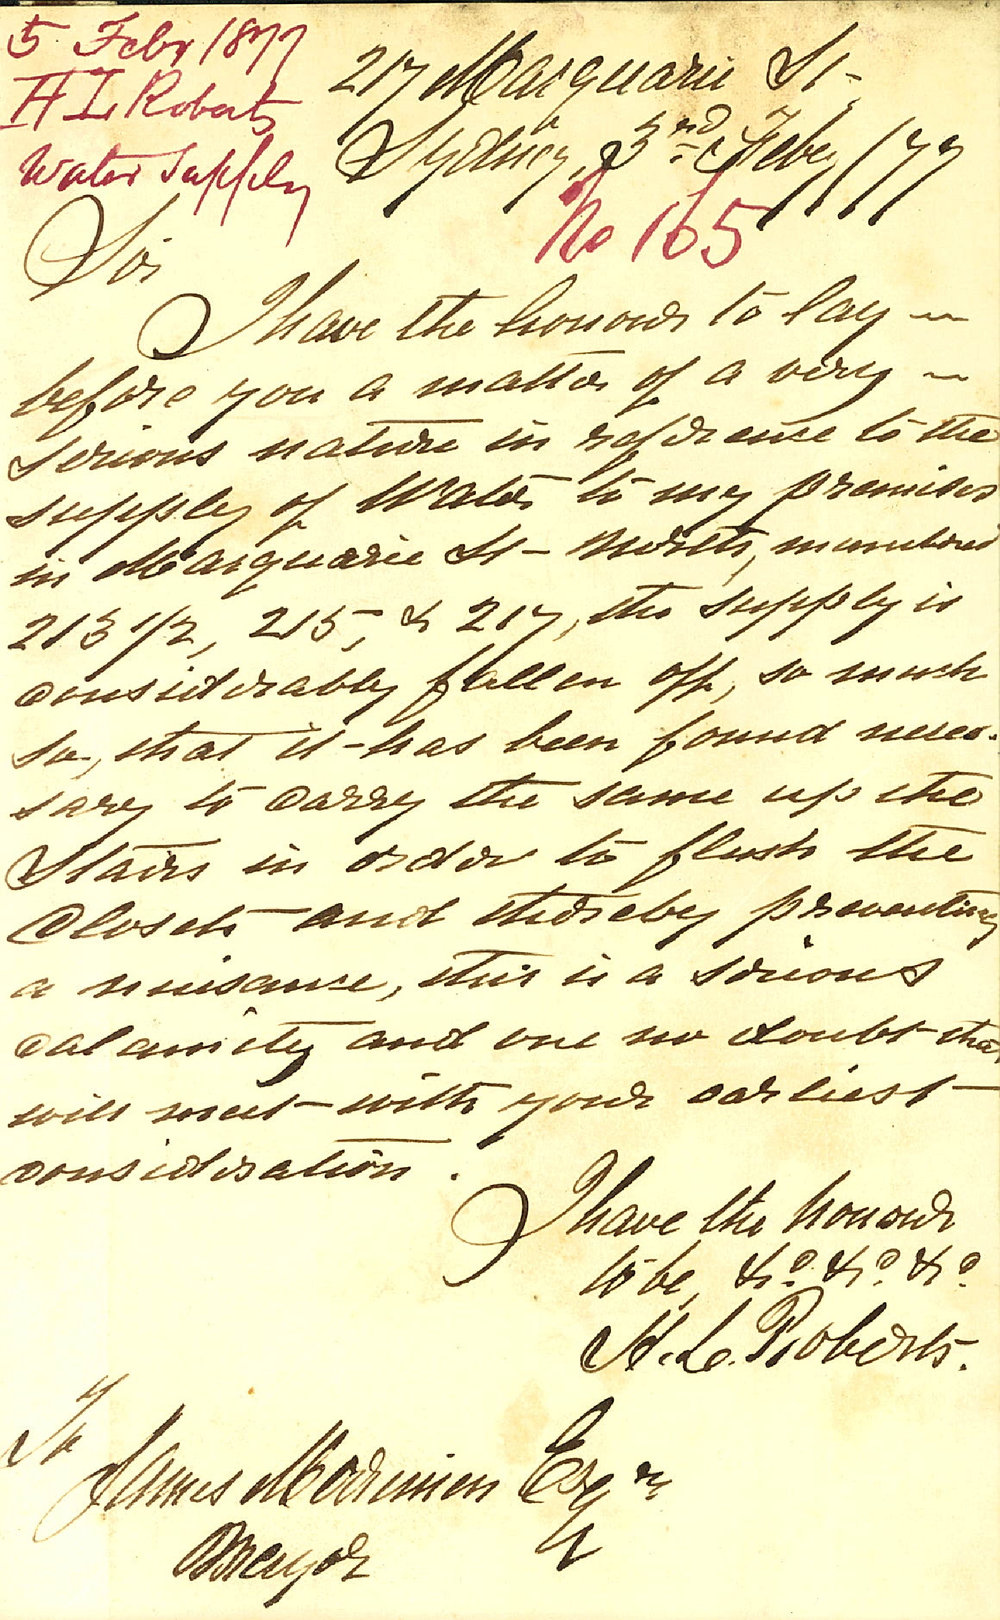 5 Feby 1877
H L Roberts
Water Supply
217 Macquarie St-
Sydney, 3rd Feby /77
No 165
Sir
I have the honour to lay
before you a matter of a very
serious nature in reference to the
supply of Water to my premises
in Macquarie St- North, numbered
213 1/2, 215, & 217, the supply is
considerably fallen off, so much
so, that it has been found neces-
sary to carry the same up the
Stairs in order to flush the
Closets and thereby preventing
a nuisance, this is a serious
calamity and one no doubt that
will meet with your earliest
consideration.
I have the honour
to be, &c. &c. &c.
H. L. Roberts.
To
James Merriman Esqr
Mayor